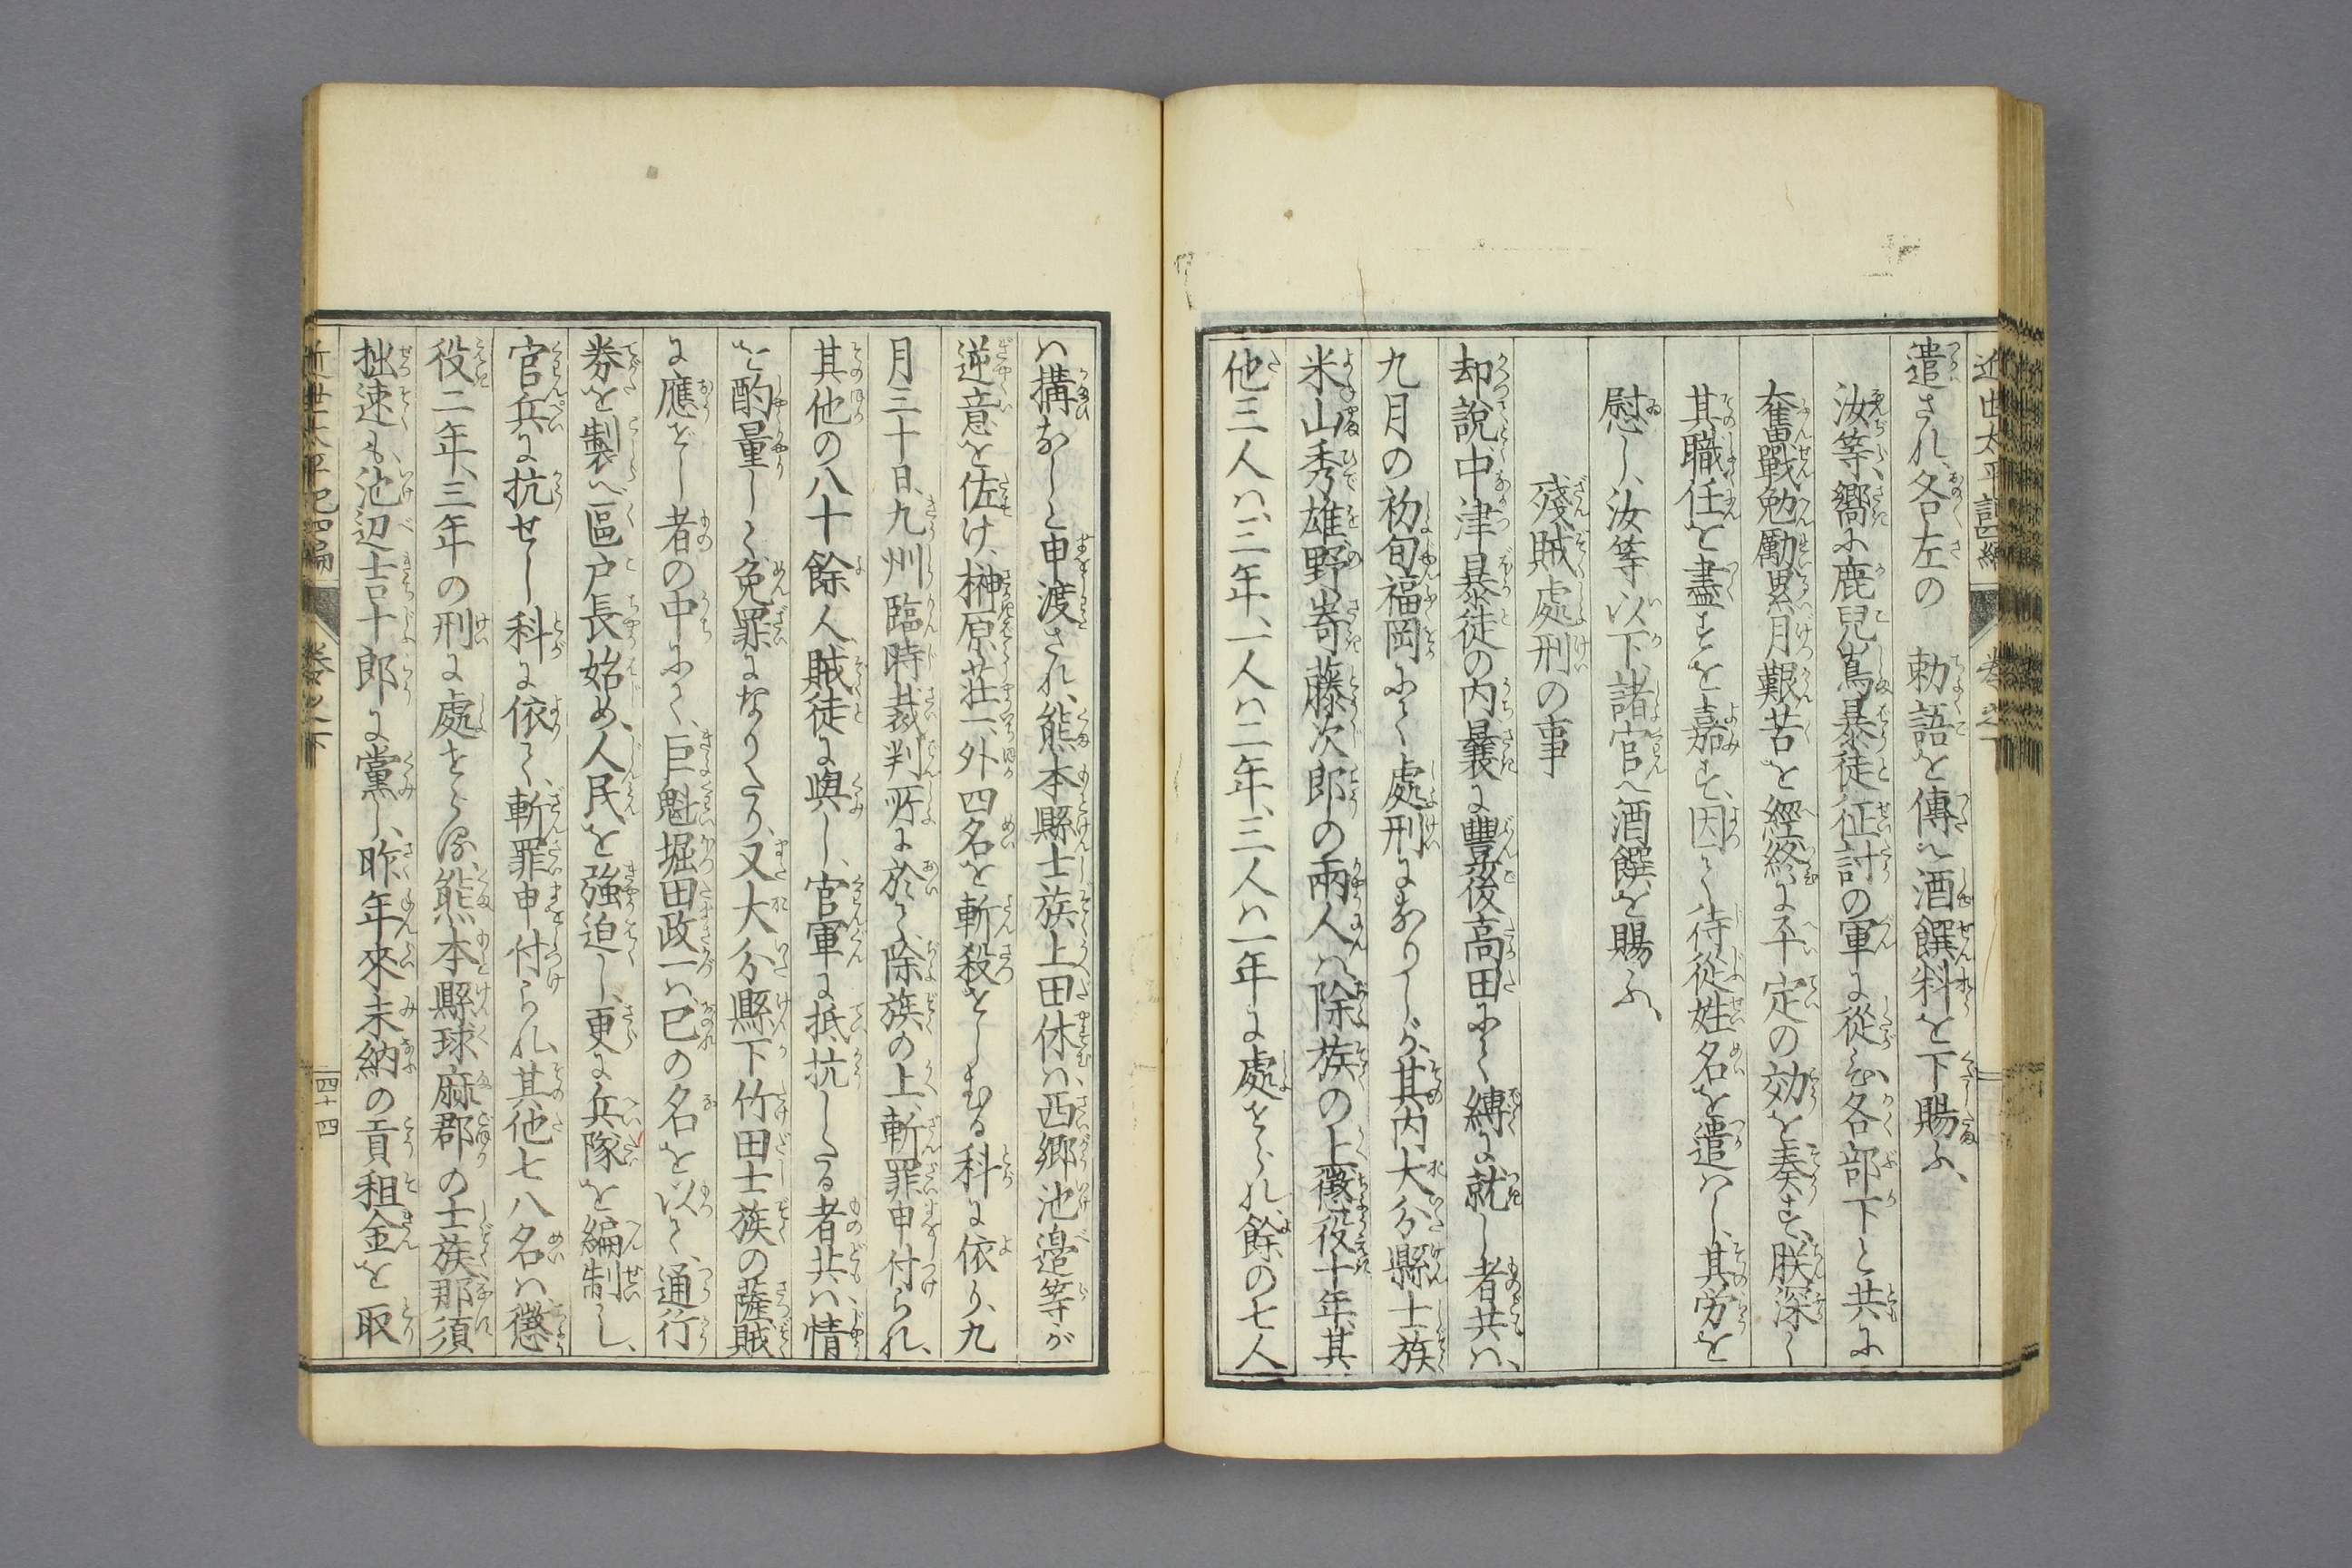 近世太平記四編　巻之下
遣され、各左の　勅語を傳へ酒饌料を下賜ふ、
汝等、嚮に鹿兒嶌暴徒征討の軍に從ひ各部下と共に
奮戰勉勵累月艱苦を經終に平定の効を奏す、朕深く
其職任を盡すを嘉す、因て侍從姓名を遣はし、其労を
慰し、汝等以下、諸官へ酒饌を賜ふ、
殘賊處刑の事
却說、中津暴徒の内曩に豐後高田にて縛に就し者共ハ、
九月の初旬福岡にて處刑になりしが、其内大分縣士族
米山秀雄、野嵜藤次郎の兩人ハ除族の上懲役十年、其
他三人ハ、三年、一人ハ二年、三人ハ一年に處せられ、餘の七人
ハ構なしと申渡され、熊本縣士族上田休ハ、西郷池邉等が
逆意を佐け、榊原荘一、外四名を斬殺せしむる科に依り、九
月三十日、九州臨時裁判所に於て、除族の上、斬罪申付られ、
其他の八十餘人、賊徒に與し、官軍に抵抗したる者共ハ情
を酌量して免罪になりたり、又大分縣下竹田士族の薩賊
に應ぜし者の中にて、巨魁堀田政一ハ、已の名を以て、通行
券を製へ區戸長始め、人民を強迫し、更に兵隊を編制し、
官兵に抗せし科に依て、斬罪申付られ、其他七八名ハ懲
役二年、三年の刑に處せらる、熊本縣球麻郡の士族、那須
拙速も、池辺吉十郎に黨し、昨年來未納の貢租金を取
近世太平記四編　巻之下　四十四